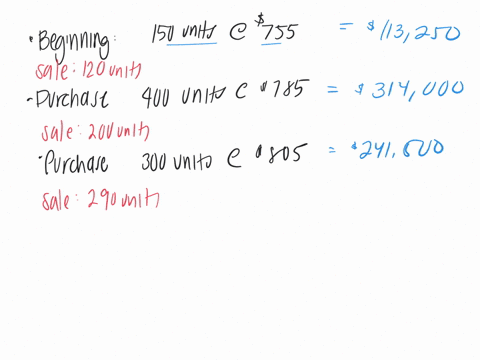 • Beginning: 150 units @ $755 = $113,250
sale: 120 units
- Purchase 400 units @ $785 = $314,000
sale: 200 units
• Purchase 300 units @ $805 = $241,500
sale: 290 units